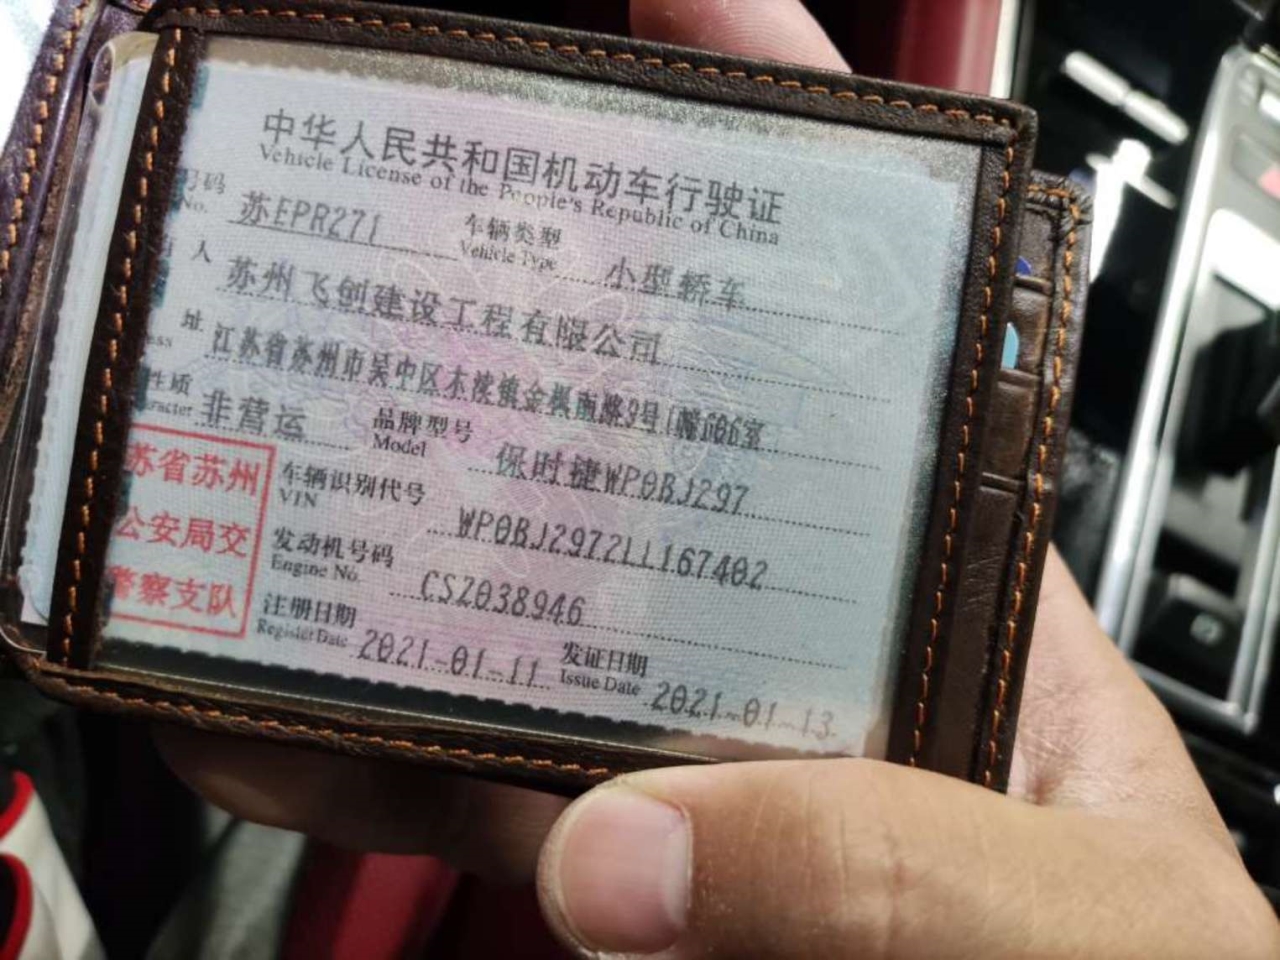 中华人民共和国机动车行驶证
Vehicle License of the People's Republic of China
号码 苏EPR271 车辆类型 小型轿车
No. Vehicle Type
人 苏州飞创建设工程有限公司
址 江苏省苏州市吴中区木渎镇金枫南路9号1幢606室
性质 非营运 品牌型号 保时捷WP0BJ297
Model
车辆识别代号 WP0BJ2972LL167402
VIN
发动机号码 CSZ038946
Engine No.
注册日期 2021-01-11 发证日期 2021-01-13
Register Date Issue Date
苏省苏州
公安局交
警察支队